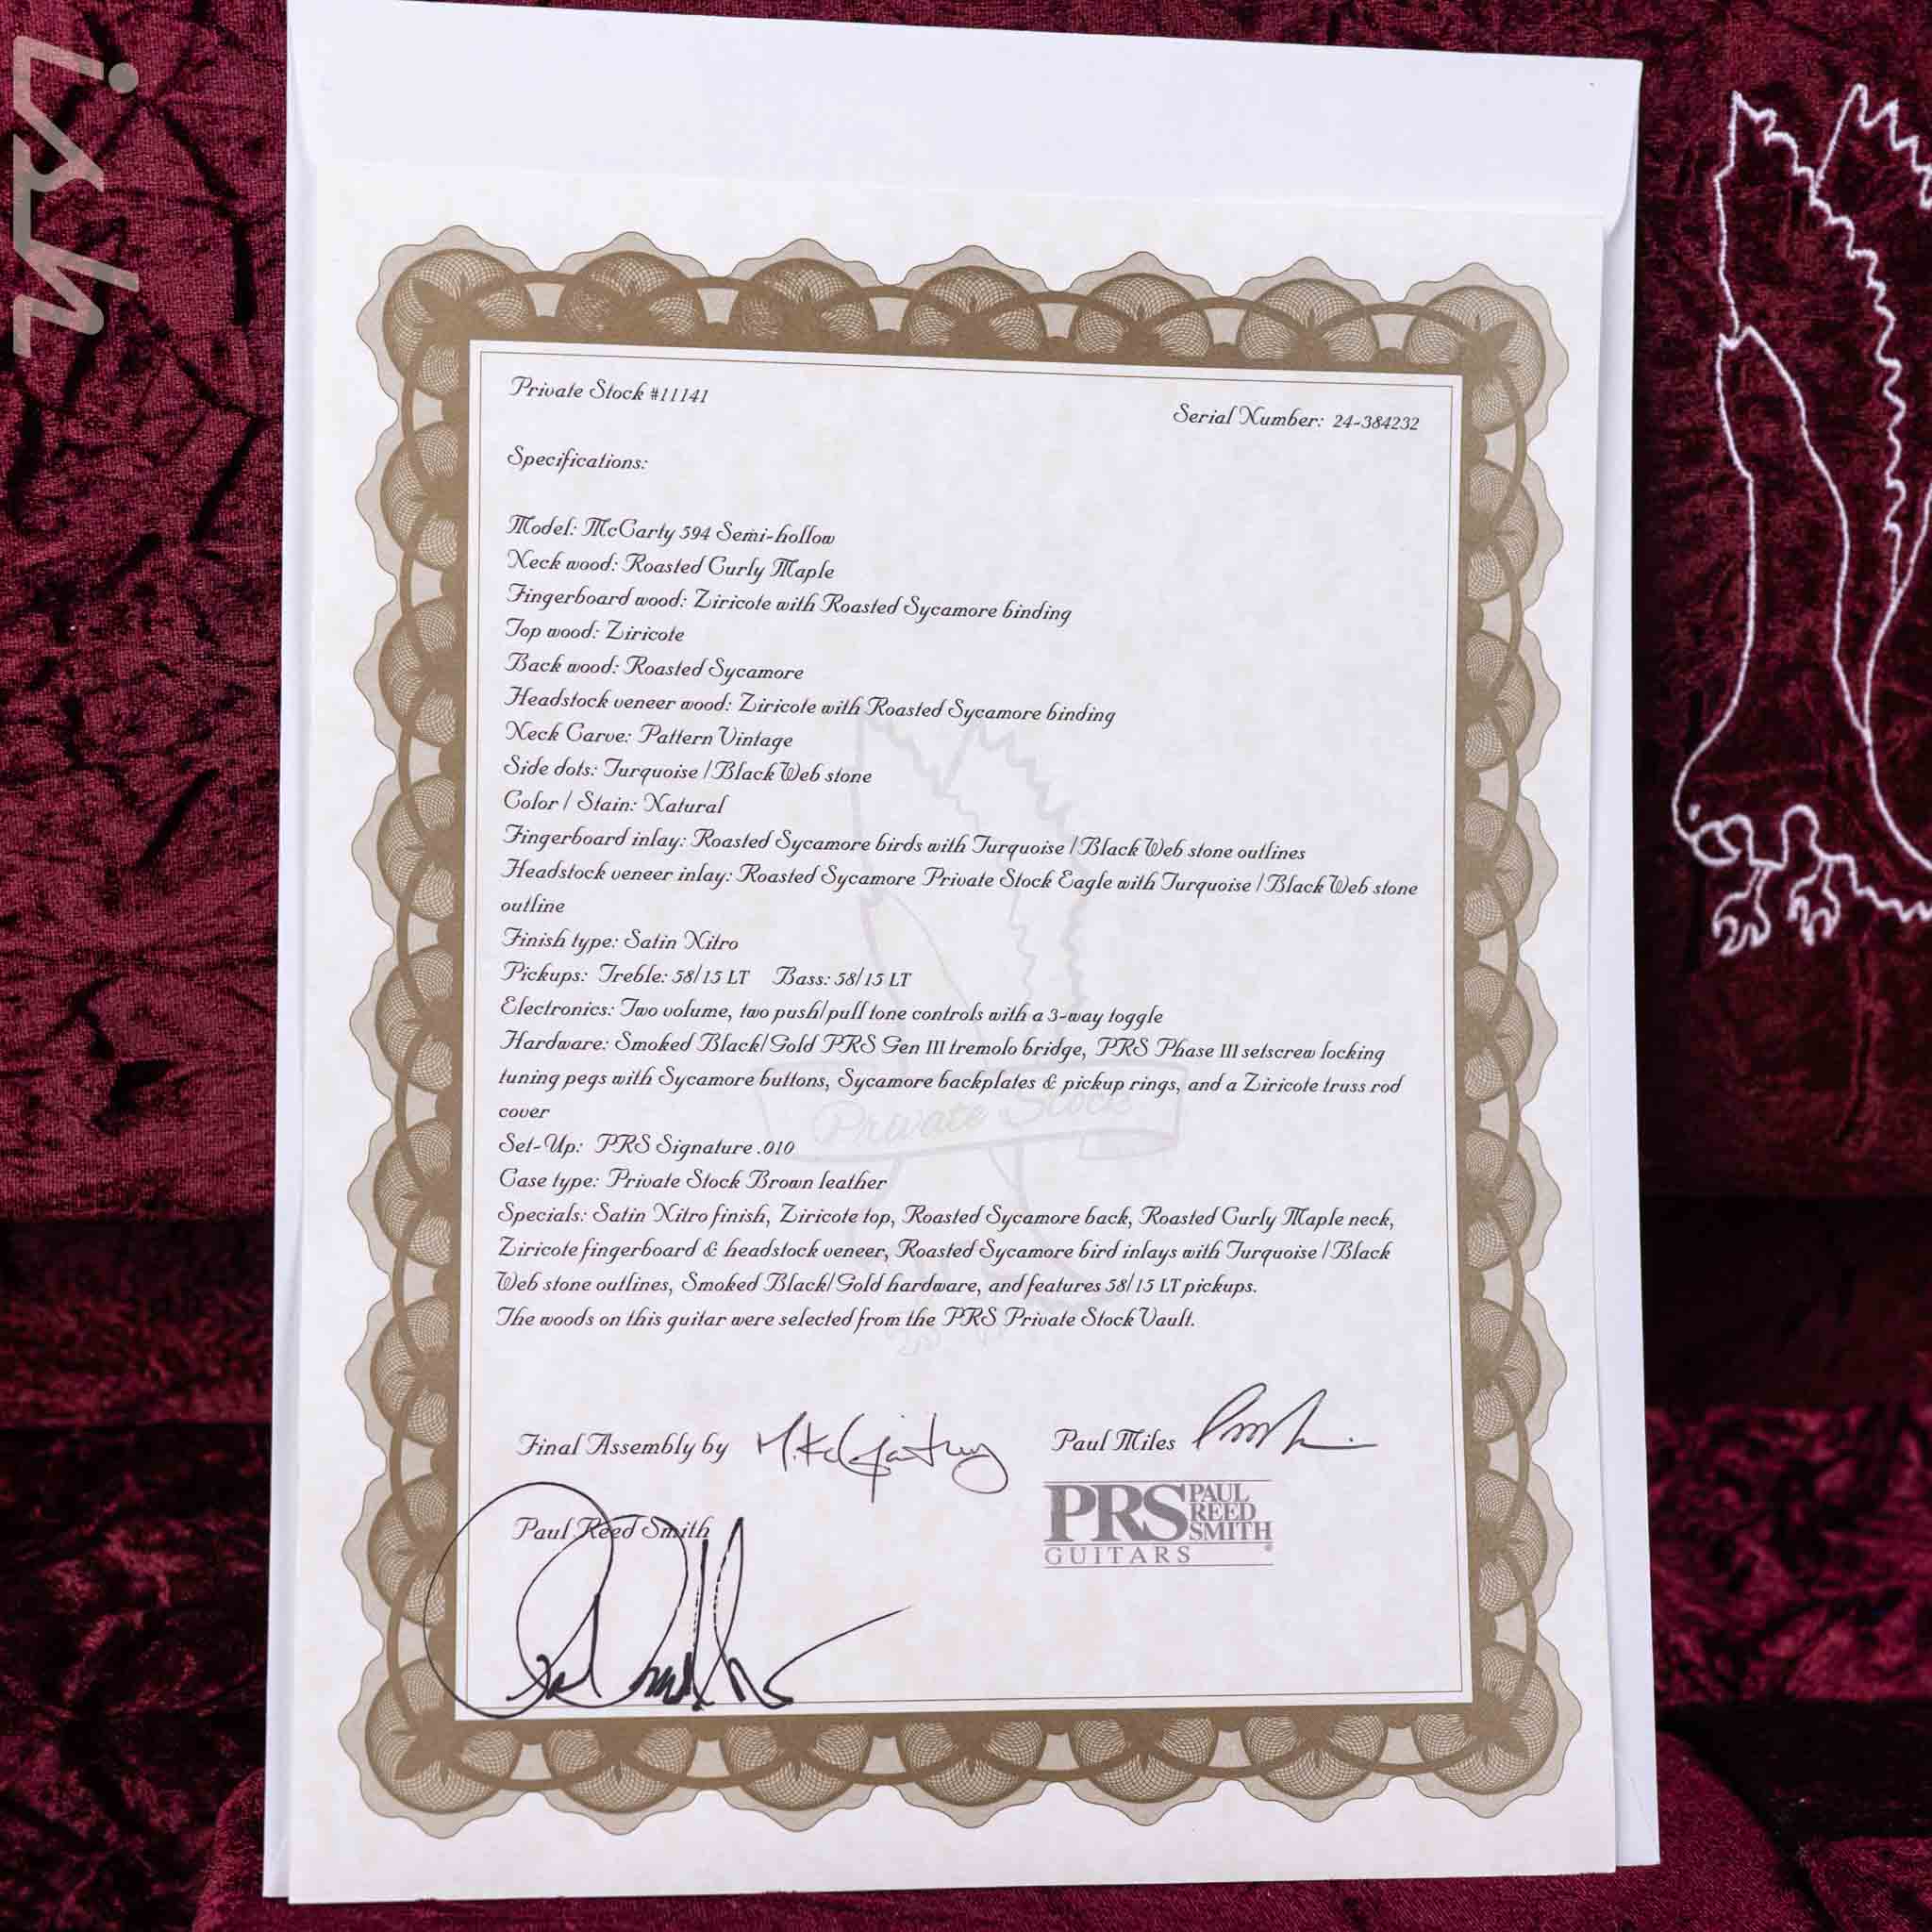 ish
Private Stock #11141
Serial Number: 24-384232
Specifications:
Model: McCarty 594 Semi-hollow
Neck wood: Roasted Curly Maple
Fingerboard wood: Ziricote with Roasted Sycamore binding
Top wood: Ziricote
Back wood: Roasted Sycamore
Headstock veneer wood: Ziricote with Roasted Sycamore binding
Neck Carve: Pattern Vintage
Side dots: Turquoise / Black Web stone
Color / Stain: Natural
Fingerboard inlay: Roasted Sycamore birds with Turquoise / Black Web stone outlines
Headstock veneer inlay: Roasted Sycamore Private Stock Eagle with Turquoise / Black Web stone
outline
Finish type: Satin Nitro
Pickups: Treble: 58/15 LT Bass: 58/15 LT
Electronics: Two volume, two push/pull tone controls with a 3-way toggle
Hardware: Smoked Black/Gold PRS Gen III tremolo bridge, PRS Phase III setscrew locking
tuning pegs with Sycamore buttons, Sycamore backplates & pickup rings, and a Ziricote truss rod
cover
Private Stock
Set-Up: PRS Signature .010
Case type: Private Stock Brown leather
Specials: Satin Nitro finish, Ziricote top, Roasted Sycamore back, Roasted Curly Maple neck,
Ziricote fingerboard & headstock veneer, Roasted Sycamore bird inlays with Turquoise / Black
Web stone outlines, Smoked Black/Gold hardware, and features 58/15 LT pickups.
The woods on this guitar were selected from the PRS Private Stock Vault.
Final Assembly by
Paul Miles
Paul Reed Smith
PRS PAUL REED SMITH
GUITARS